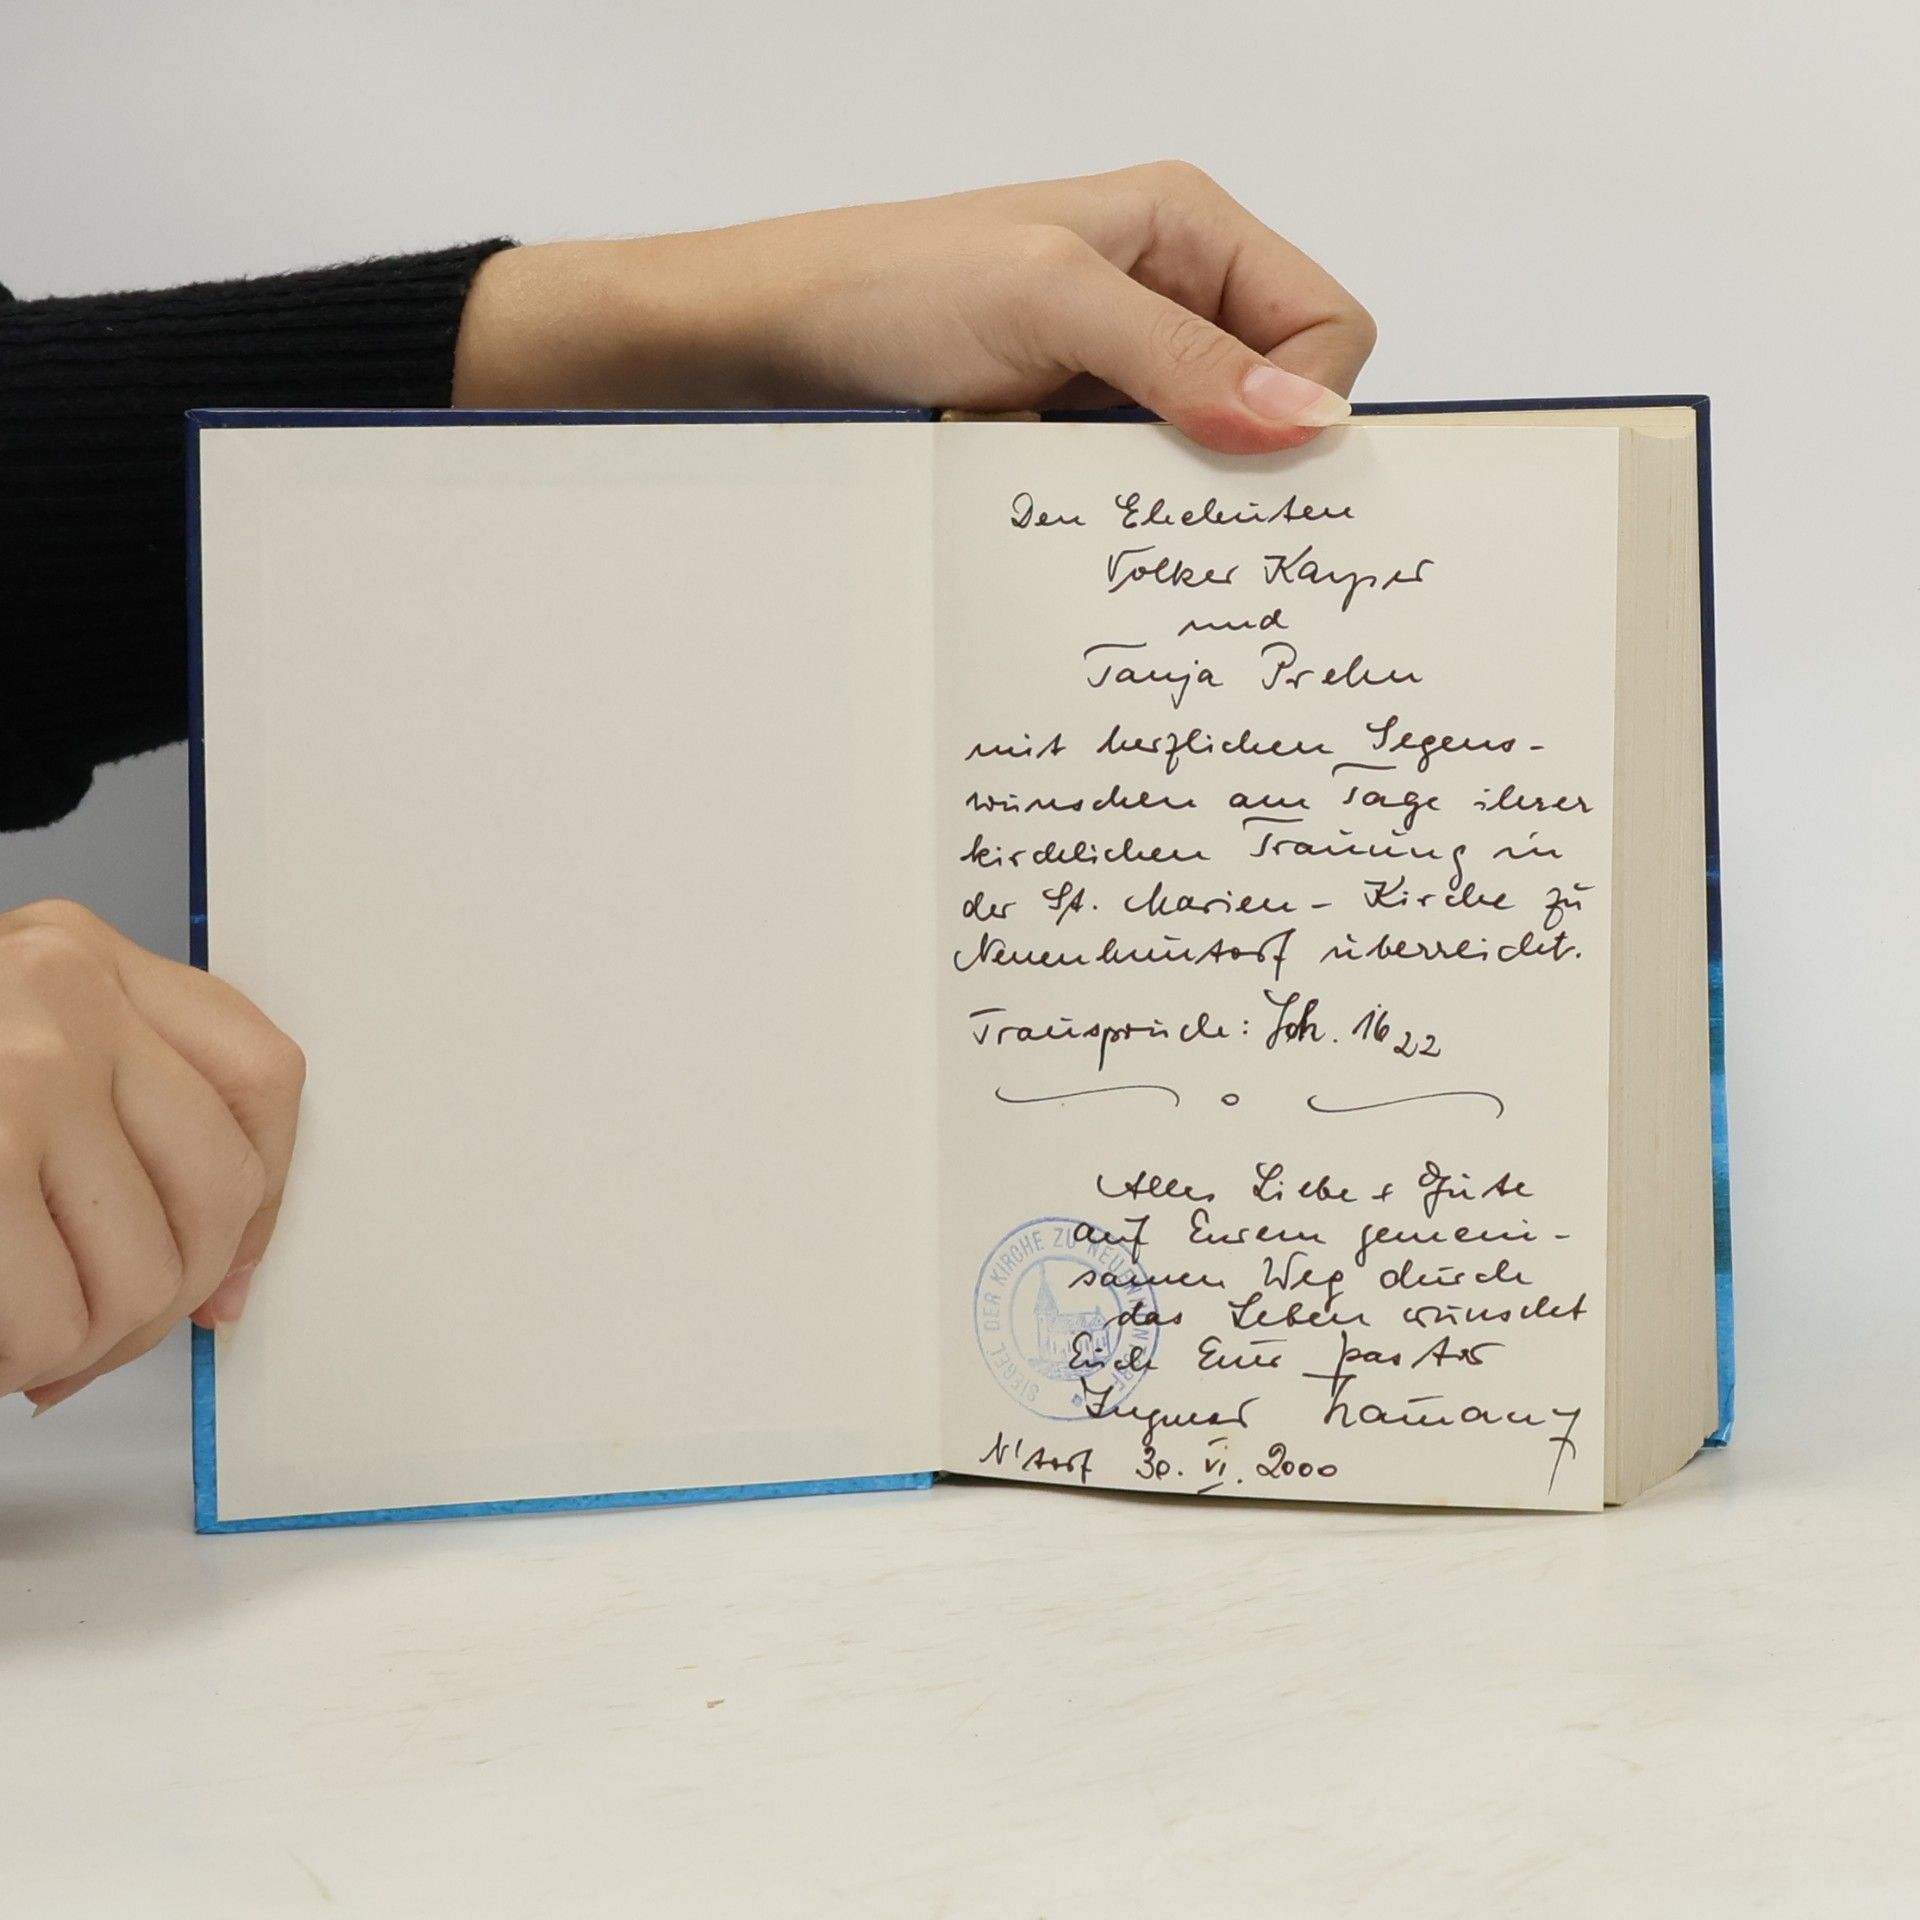 Den Eheleuten
Volker Kayser
und
Tanja Prehn
mit herzlichen Segens-
wünschen am Tage ihrer
kirchlichen Trauung in
der St. Marien-Kirche zu
Neuenhuntorf überreicht.
Trauspruch: Joh. 16 22
Alles Liebe + Gute
auf Eurem gemein-
samen Weg durch
das Leben wünscht
Euch Euer Pastor
Ingmar
N'torf 30. VI. 2000
SIEGEL DER KIRCHE ZU